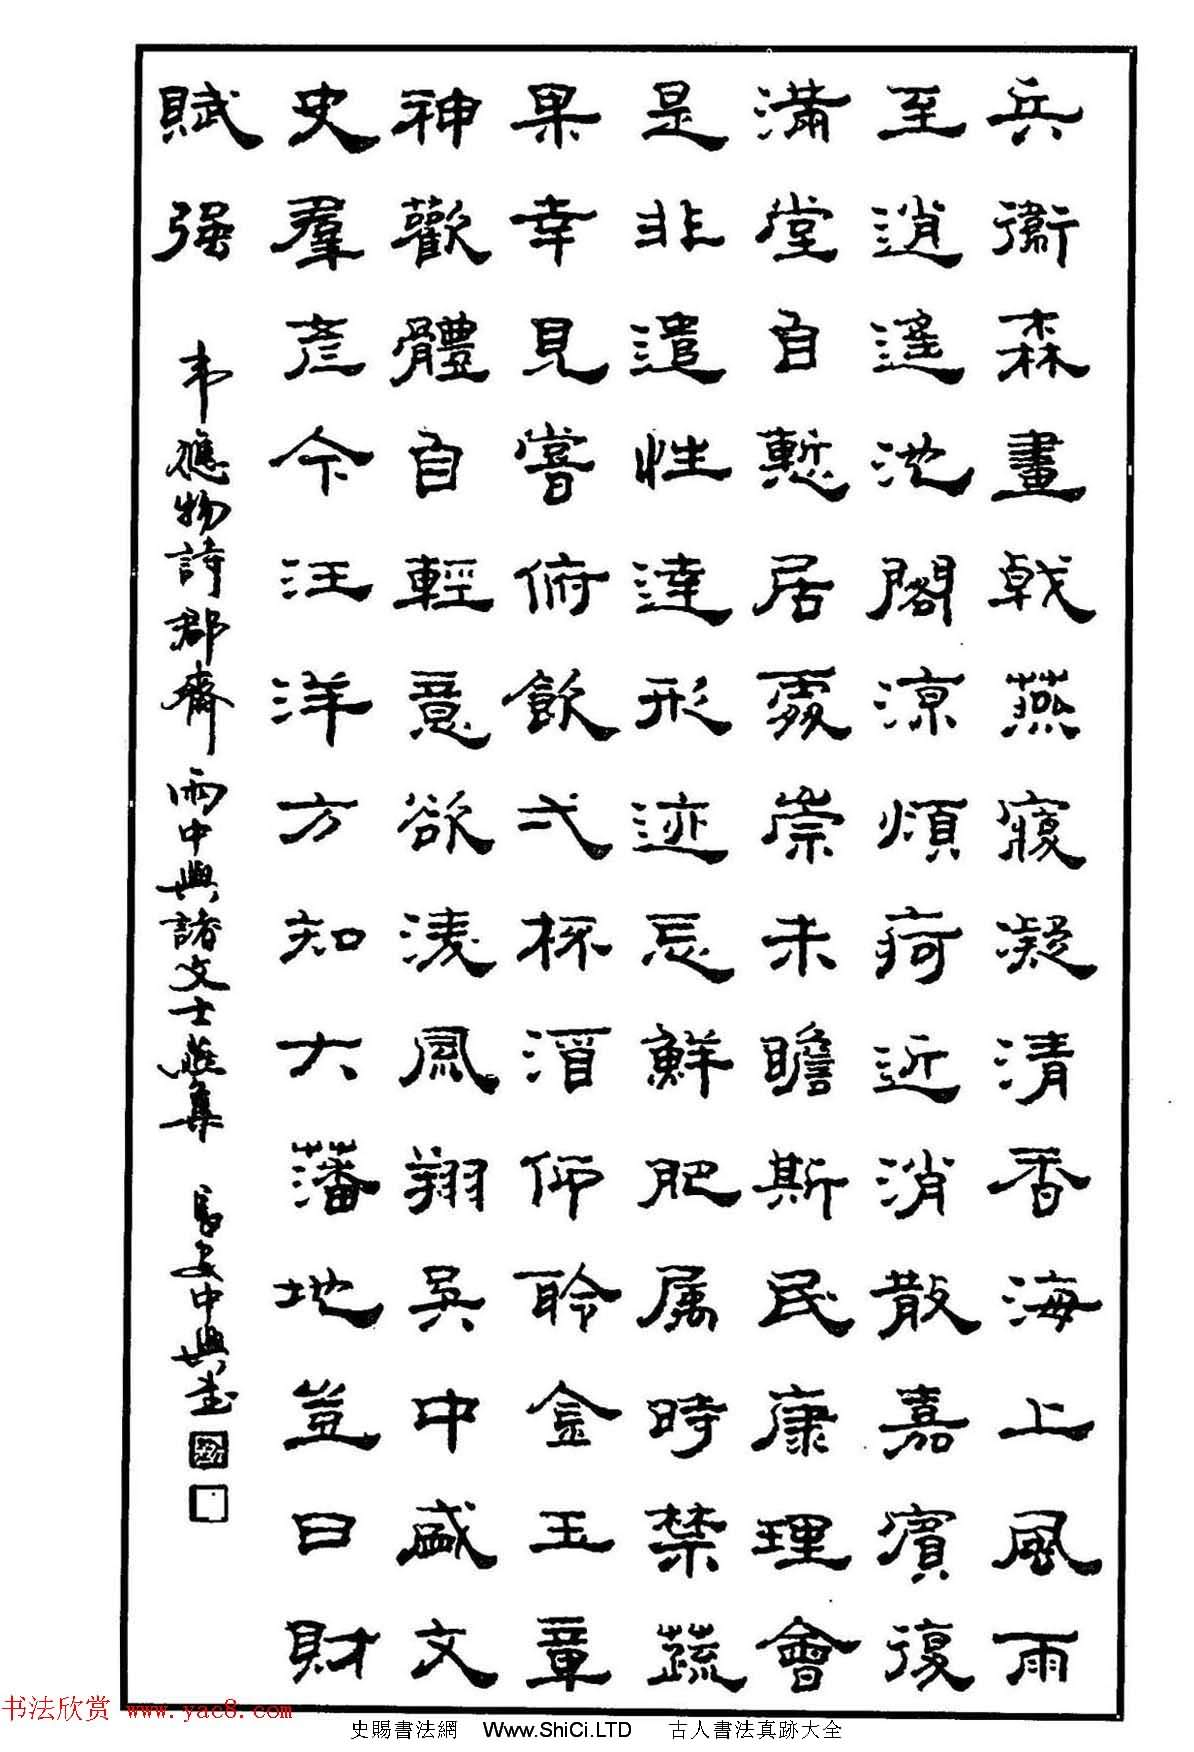 兵衛森畫戟燕寢凝清香海上風雨
至逍遙池閣涼煩疴近消散嘉賓復
滿堂自慙居處崇未瞻斯民康理會
是非遣性達形迹忘鮮肥屬時禁蔬
果幸見嘗俯飲弌杯酒仰聆金玉章
神歡體自輕意欲淩風翔吳中盛文
史羣彦今汪洋方知大藩地豈曰財
賦强
韦應物詩郡齋雨中與諸文士燕集 長安中興書
书法欣赏 www.yac8.com
史賜書法網 Www.ShiCi.LTD 古人書法真跡大全